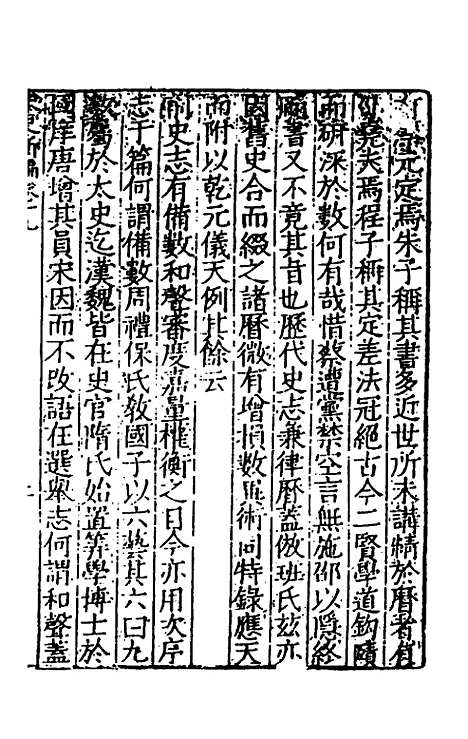 元定焉朱子稱其書多近世所未講精於曆者有
邵堯夫焉程子稱其定差法冠絕古今二賢學道鈎賾
而研深於數何有哉惜蔡遭黨禁空言無施邵以隱終
著書又不竟其旨也歷代史志兼律曆蓋倣班氏茲亦
因舊史合而綴之諸曆微有增損數術同特錄應天
而附以乾元儀天例其餘云
前史志有備數和聲審度嘉量權衡之目今亦用次序
志于篇何謂備數周禮保氏教國子以六藝其六曰九
數屬於太史迄漢魏皆在史官隋氏始置筭學博士於
國庠唐增其員宋因而不改語在選舉志何謂和聲蓋
宋史新編卷十九